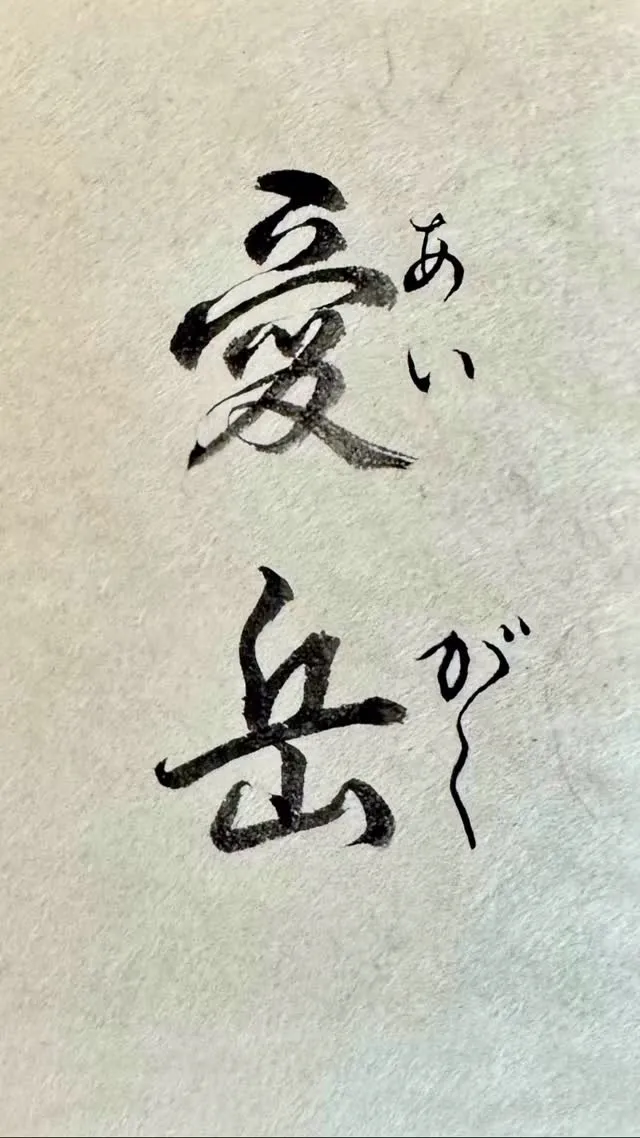 愛岳
あいがく